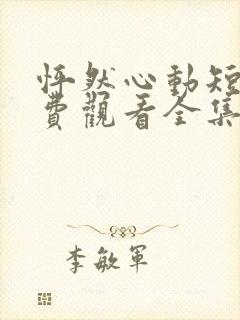 怦然心動短
費觀看全集
李敏軍